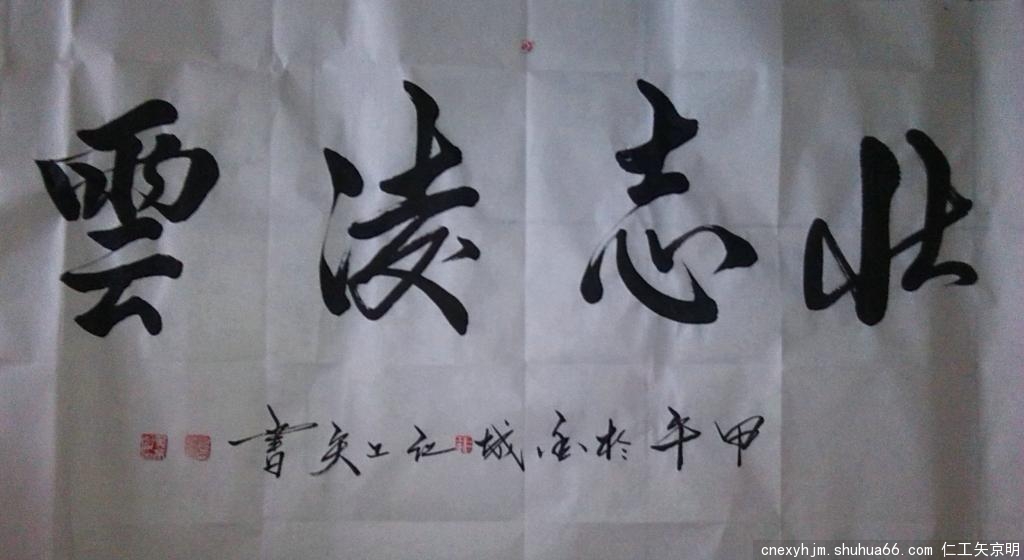 壮志凌雲
甲午於金城仁工矢書
cnexyhjm.shuhua66.com 仁工矢京明